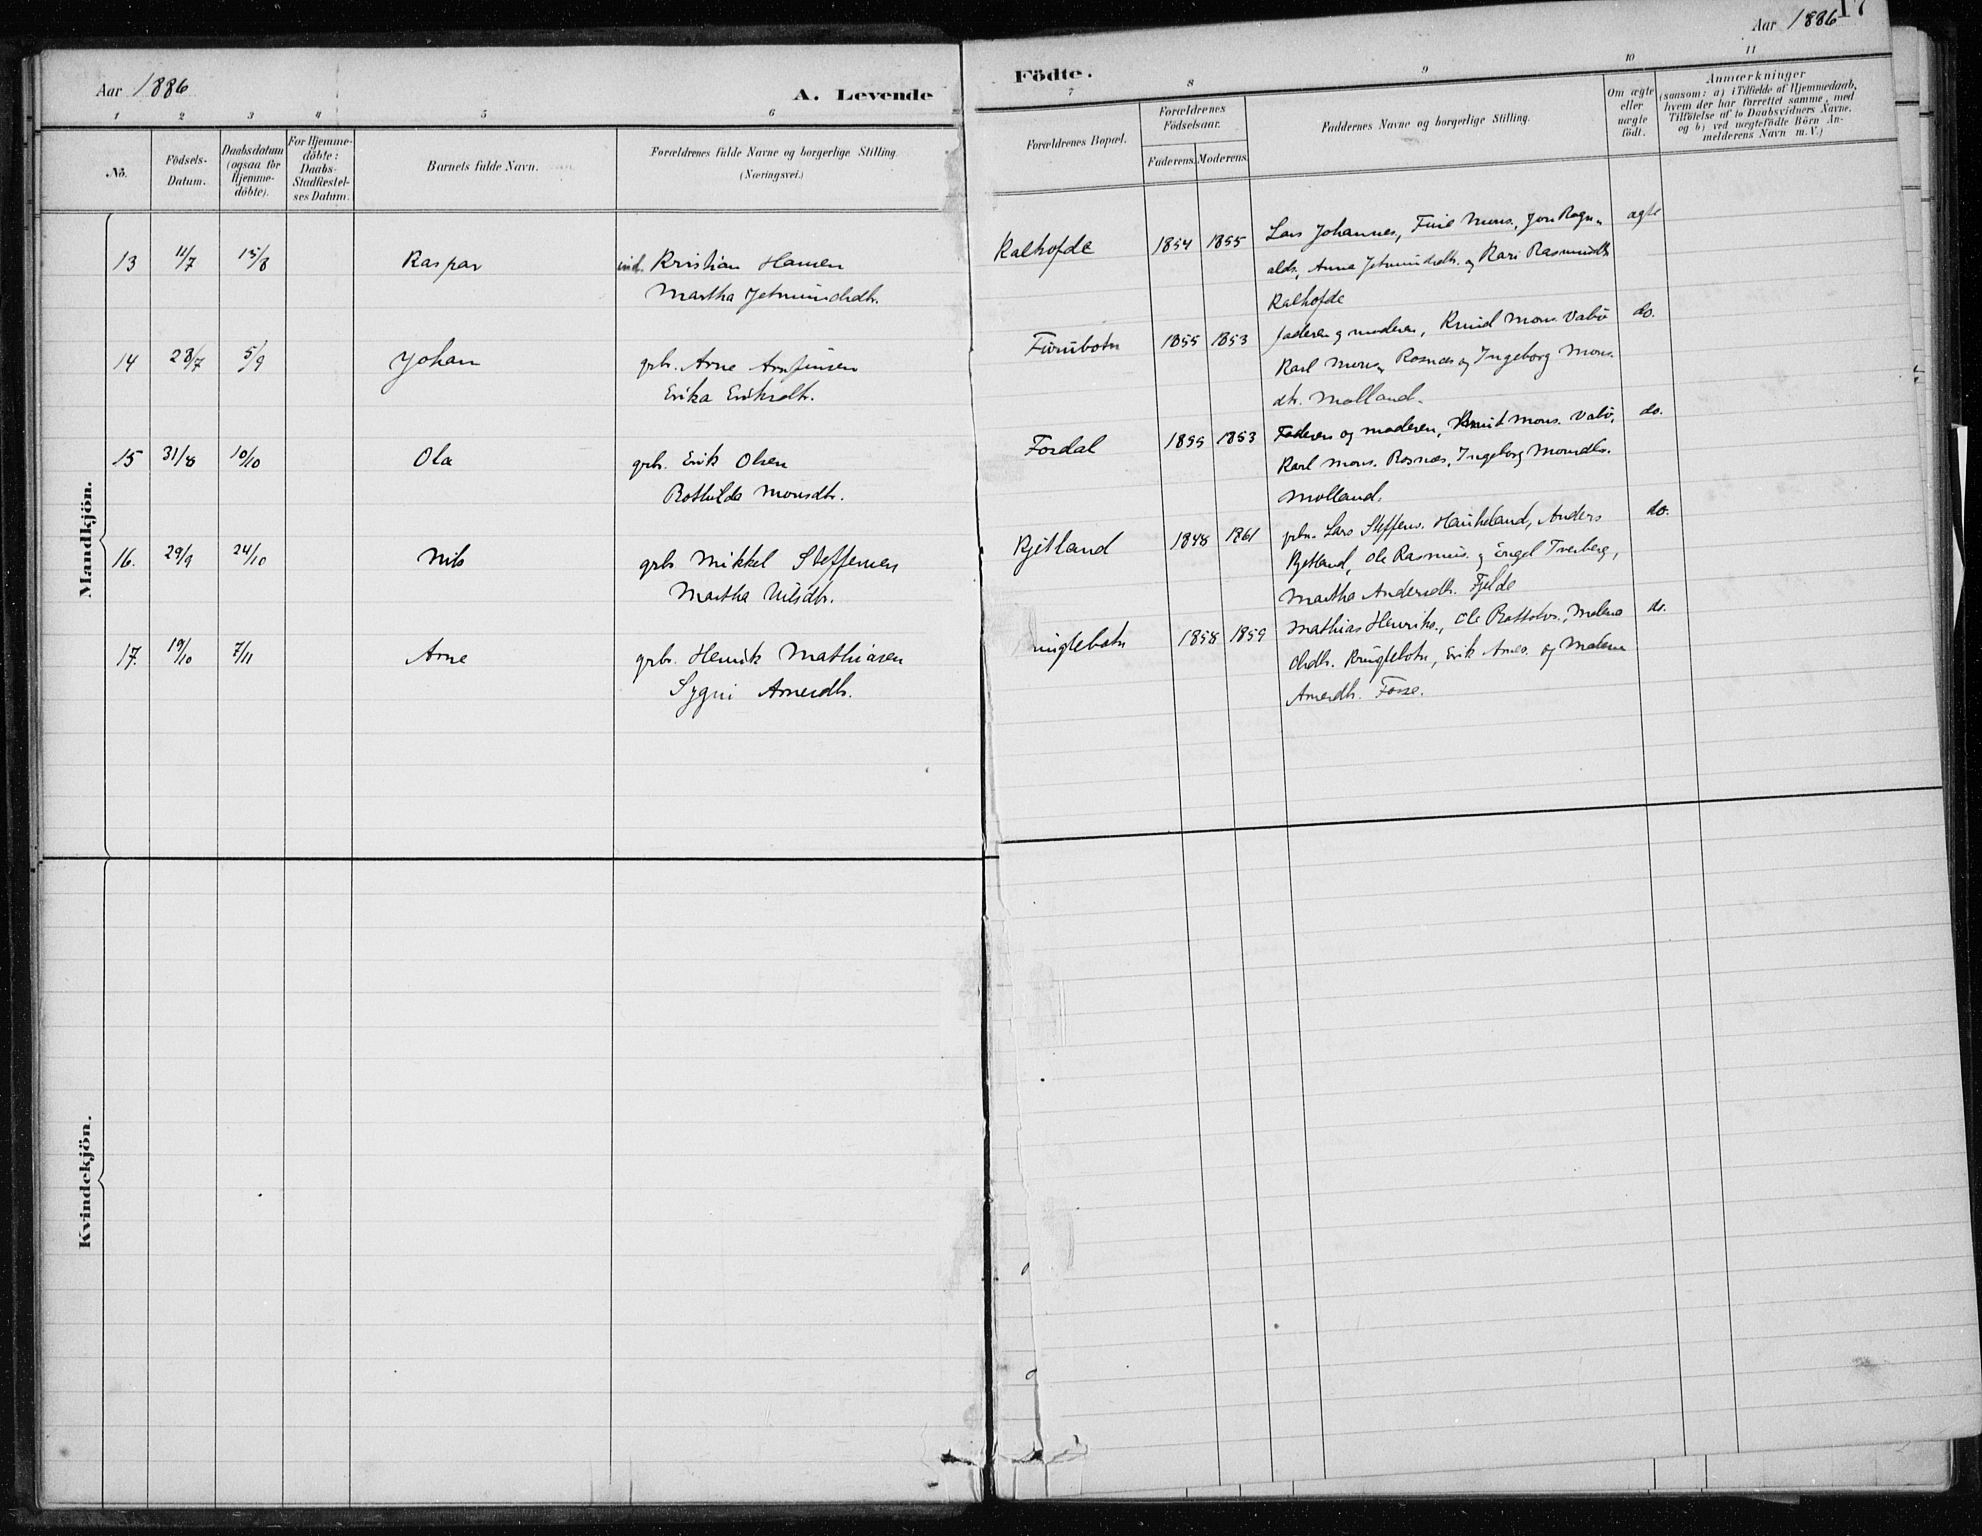 Aar 1886
A. Levende
1 2 3 4 5 6
No.
Födsels-
Datum.
Daabsdatum
(ogsaa for
Hjemme-
döbte).
For Hjemme-
döbte:
Daabs-
Stadfæstel-
ses Datum.
Barnets fulde Navn.
Forældrenes fulde Navne og borgerlige Stilling
(Næringsvei.)
Mandkjön.
13 11/7 15/8 Kaspar ind. Kristian Hansen
Martha Jetmundsdtr.
14 28/7 5/9 Johan grb. Arne Arnfinsen
Erika Eriksdtr.
15 31/8 10/10 Ola grb. Erik Olsen
Bothilda Monsdtr.
16. 29/9 24/10 Nils grb. Mikkel Steffensen
Martha Nilsdtr.
17. 19/10 7/11 Arne grb. Henrik Mathiasen
Sygni Arnesdtr.
Kvindekjön.
17
Aar 1886
Födte.
7 8 9 10 11
Forældrenes Bopæl.
Forældrenes
Födselsaar.
Faderens. Moderens.
Faddernes Navne og borgerlige Stilling.
Om ægte
eller
uægte
födt.
Anmærkninger
(saasom: a) i Tilfælde af Hjemmedaab,
hvem der har forrettet samme, med
Tilföielse af to Daabsvidners Navne,
og b) ved uægtefödte Börn An-
melderens Navn m. V.)
Kalhofde 1854 1855 Lars Johannes, Mons., Jon Ragn- ægte
alds., Anna Jetmundsdtr. og Kari Rasmusdtr.
Kalhofde
Furubotn 1855 1853 faderen og moderen, Knud Mons. Vabö do.
Karl Mons. Rosnæs og Ingeborg Mons-
dtr. Molland.
Fosdal 1855 1853 Faderen og moderen, Knut Mons. Vabö, do.
Karl Mons. Rosnæs, Ingeborg Monsdtr.
Molland.
Kjetland 1848 1861 grbr. Lars Steffens. Haukeland, Anders do.
Kjetland, Ole Rasmus. og Engel Tverberg,
Martha Andersdtr. Fjelde
ringlebotn 1858 1859 Mathias Henriks., Ole Bottolvs., Malena do.
Olsdtr. Kringlebotn, Erik Arnes. og Malena
Arnesdtr. Fosse.